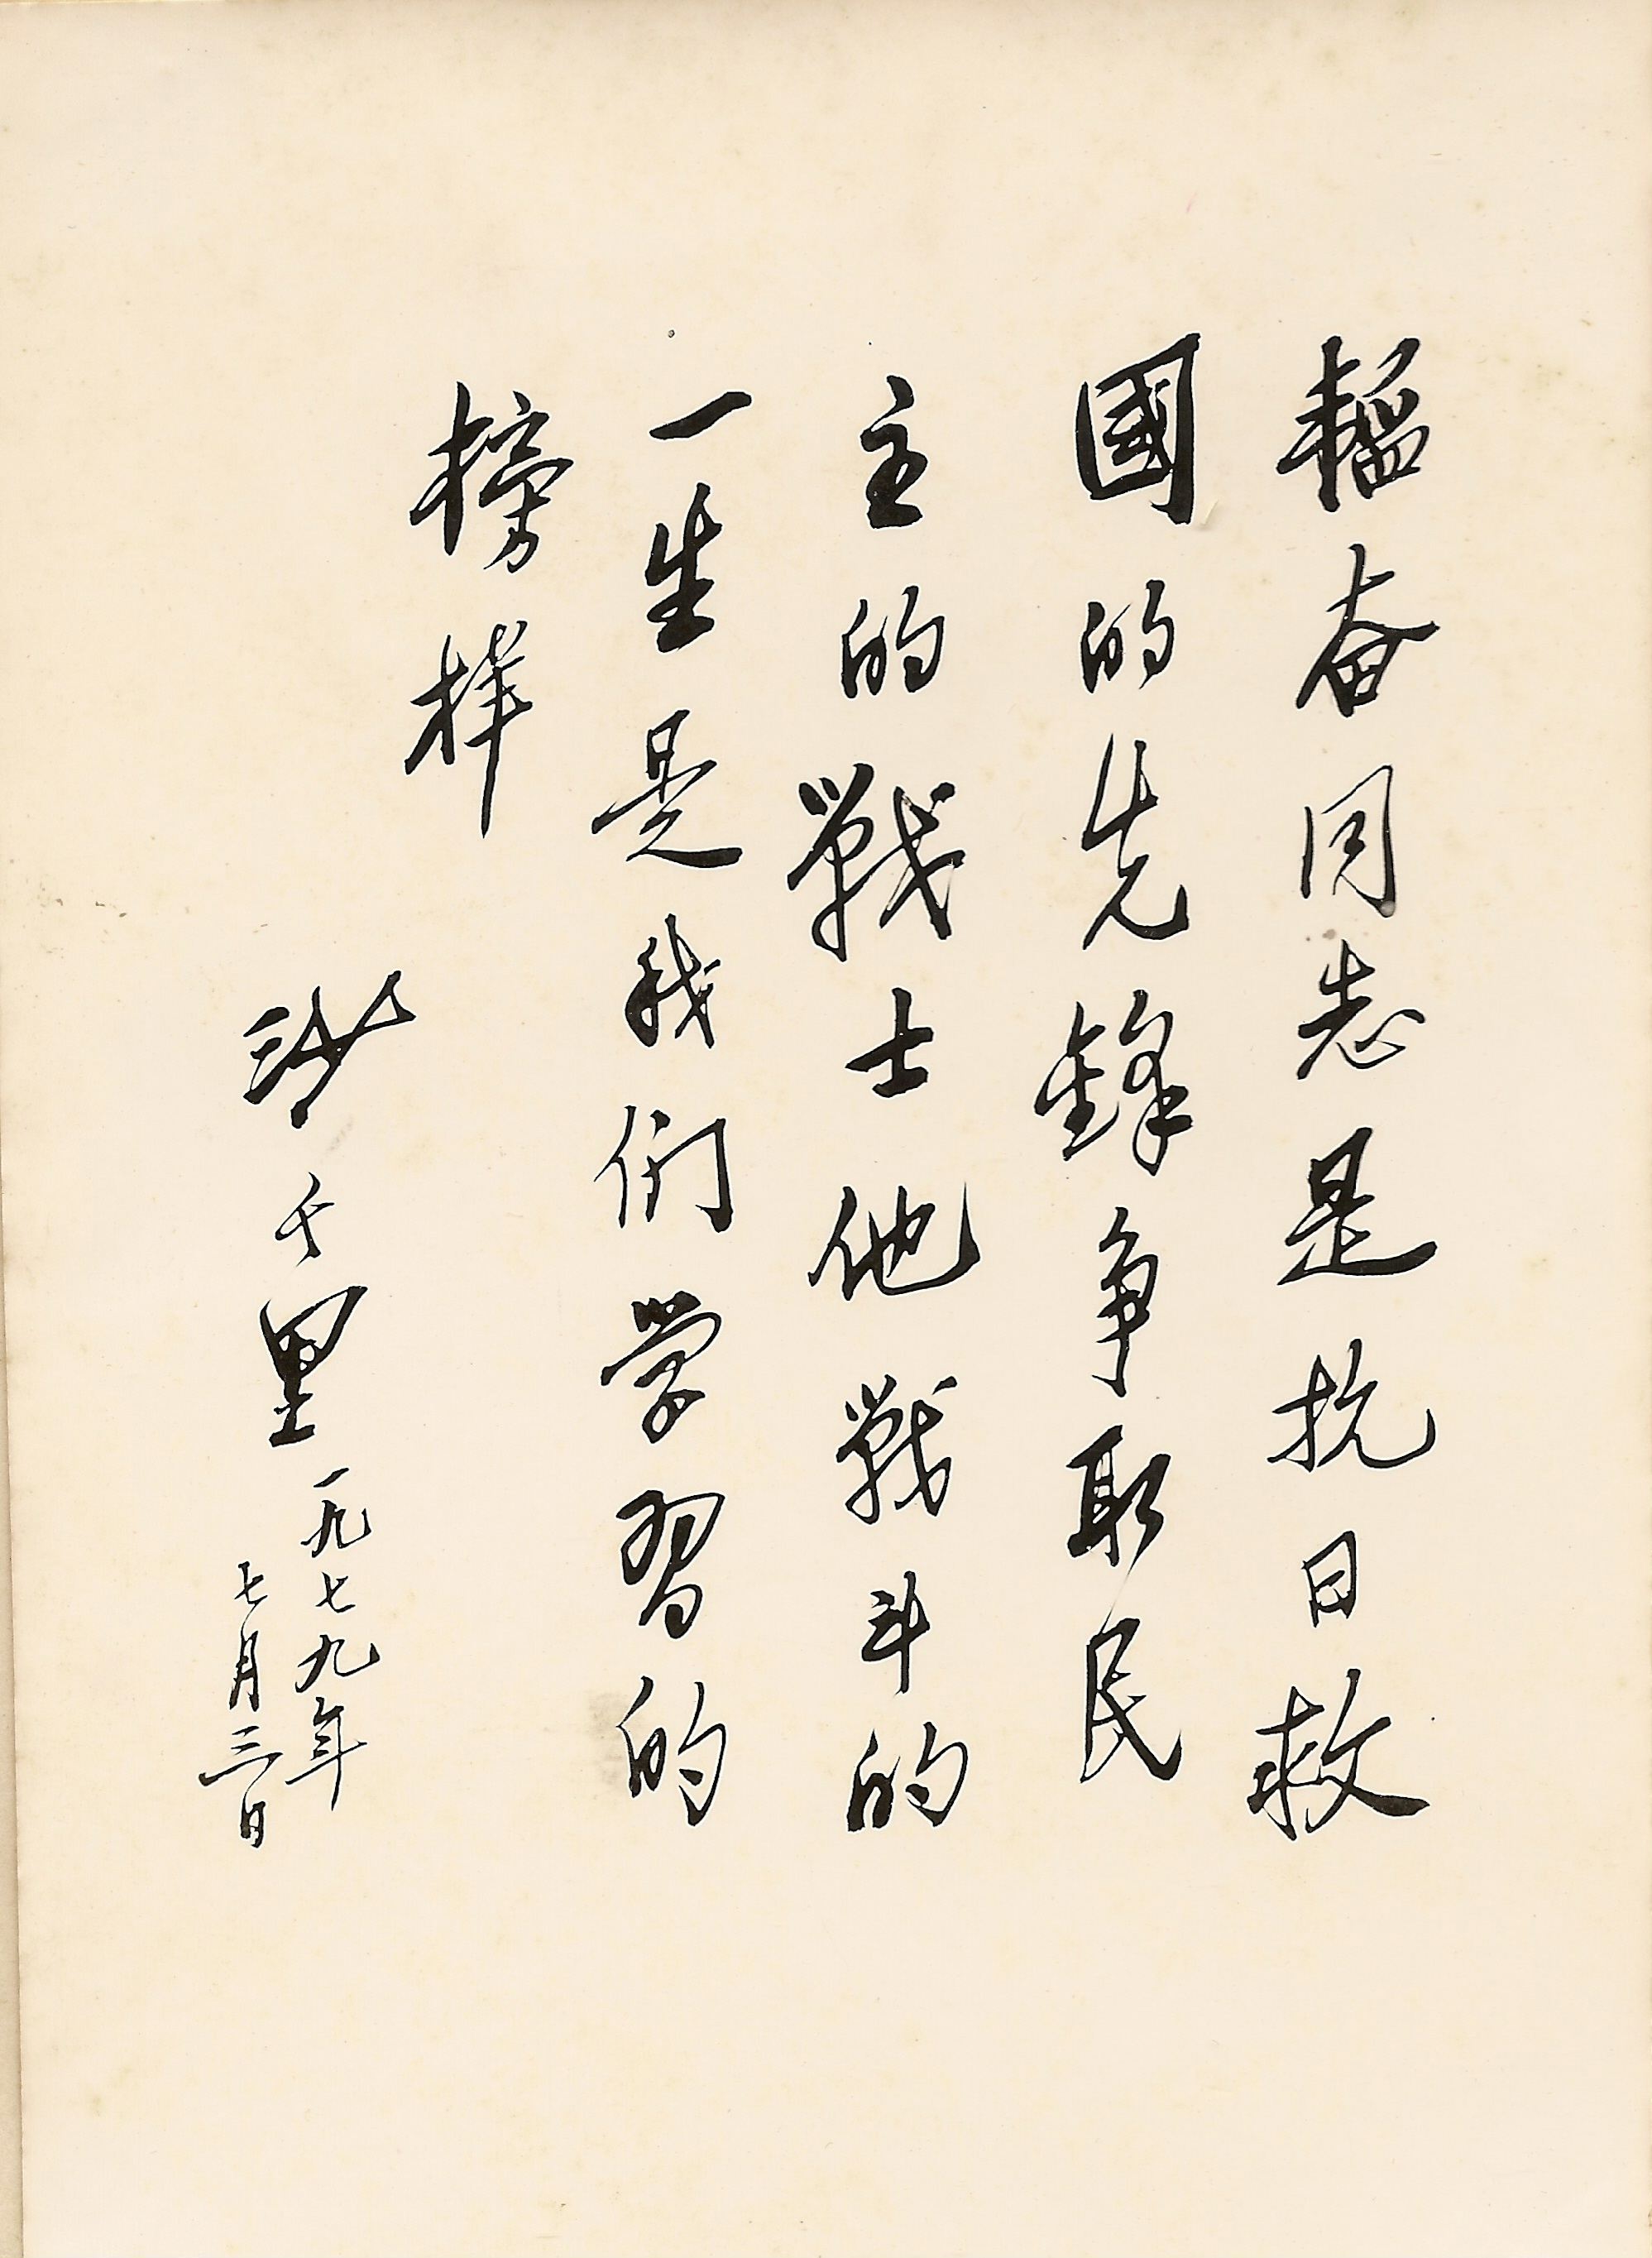 韬奋同志是抗日救
國的先鋒争取民
主的戰士他戰斗的
一生是我们学習的
榜样
沙千里
一九七九年
七月三日